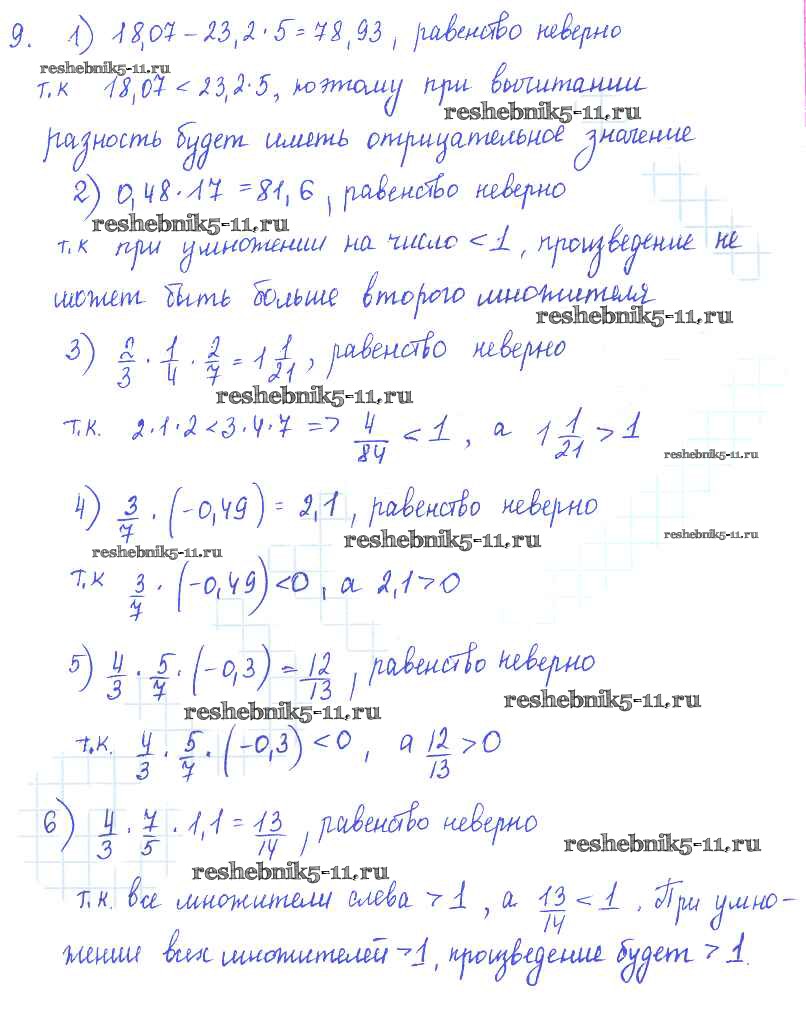 9. 1) 18,07 – 23,2 · 5 = 78,93, равенство неверно
reshebnik5-11.ru
т.к 18,07 < 23,2 · 5, поэтому при вычитании
reshebnik5-11.ru
разность будет иметь отрицательное значение
2) 0,48 · 17 = 81,6, равенство неверно
reshebnik5-11.ru
т.к при умножении на число < 1, произведение не
может быть больше второго множителя
reshebnik5-11.ru
3) 2/3 · 1/4 · 2/7 = 1 1/21, равенство неверно
reshebnik5-11.ru
т.к. 2·1·2 < 3·4·7 => 4/84 < 1, а 1 1/21 > 1
reshebnik5-11.ru
4) 3/7 · (-0,49) = 2,1, равенство неверно
reshebnik5-11.ru
reshebnik5-11.ru
reshebnik5-11.ru
т.к 3/7 · (-0,49) < 0, а 2,1 > 0
5) 4/3 · 5/7 · (-0,3) = 12/13, равенство неверно
reshebnik5-11.ru
reshebnik5-11.ru
т.к. 4/3 · 5/7 · (-0,3) < 0, а 12/13 > 0
6) 4/3 · 7/5 · 1,1 = 13/14, равенство неверно
reshebnik5-11.ru
reshebnik5-11.ru
т.к. все множители слева > 1, а 13/14 < 1. При умно-
жении всех множителей > 1, произведение будет > 1.